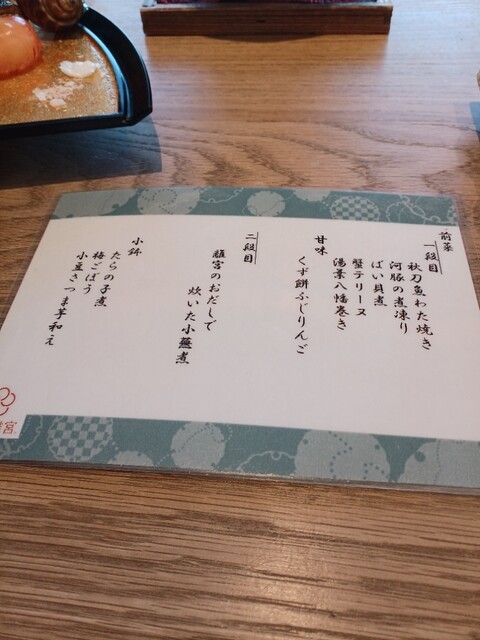 前菜
一段目
秋刀魚わた焼き
河豚の煮凍り
ばい貝煮
蟹テリーヌ
湯葉八幡巻き
甘味
くず餅ふじりんご
二段目
離宮のおだしで
炊いた小蕪煮
小鉢
たらの子煮
梅ごぼう
小豆さつま芋和え
宮